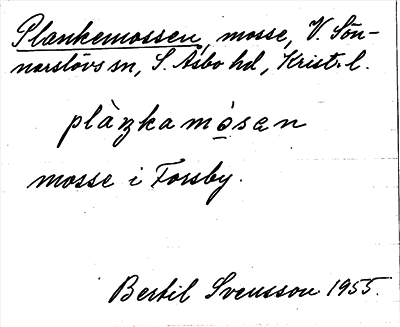 Plankemossen, mosse, V. Sön-
narslövs sn, S. Åsbo hd, Krist. l.
plàŋkamòsæn
mosse i Forsby.
Bertil Svensson 1955.